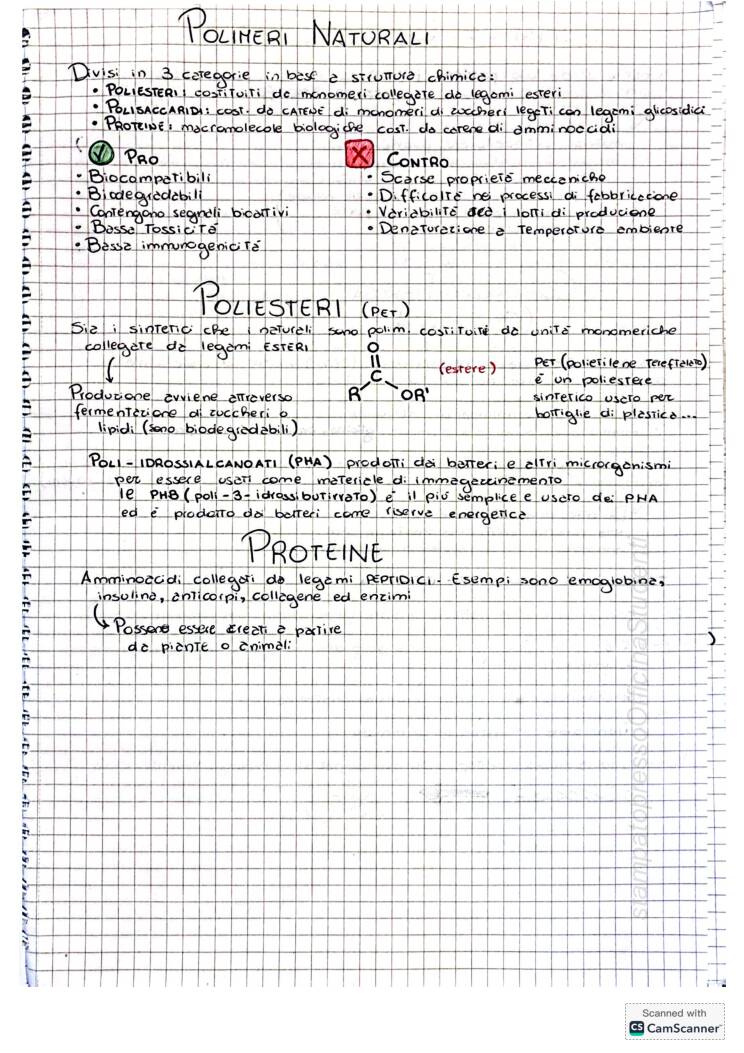 POLIMERI NATURALI
Divisi in 3 categorie in base a struttura chimica:
• POLIESTERI: costituiti da monomeri collegate da legami esteri
• POLISACCARIDI: cost. da CATENE di monomeri di zuccheri legati con legami glicosidici
• PROTEINE: macromolecole biologiche cost. da catene di amminoccidi
PRO
• Biocompatibili
• Biodegradabili
• Contengono segnali bioattivi
• Bassa Tossicità
• Bassa immunogenicità
CONTRO
• Scarse proprietà meccaniche
• Difficoltà nei processi di fabbricazione
• Variabilità i lotti di produzione
• Denaturazione a temperatura ambiente
POLIESTERI (PET)
Sia i sintetici che i naturali sono polim. costituite da unità monomeriche
collegate da legami ESTERI
Produzione avviene attraverso
fermentazione di zuccheri o
lipidi (sono biodegradabili)
O
C
R OR'
(estere)
PET (polietilene Tereftalato)
è un poliestere
sintetico usato per
bottiglie di plastica...
POLI-IDROSSIALCANOATI (PHA) prodotti dai batteri e altri microrganismi
per essere usati come materiale di immagazzinamento
le PHB (poli-3-idrossibutirrato) è il più semplice e usato dei PHA
ed è prodotto dai batteri come riserva energetica
PROTEINE
Amminoacidi collegati da legami PEPTIDICI. Esempi sono emoglobina,
insulina, anticorpi, collagene ed enzimi
Possono essere creati a partire
da piante o animali:
stampatopressoOfficinaStudenti
Scanned with
CS CamScanner